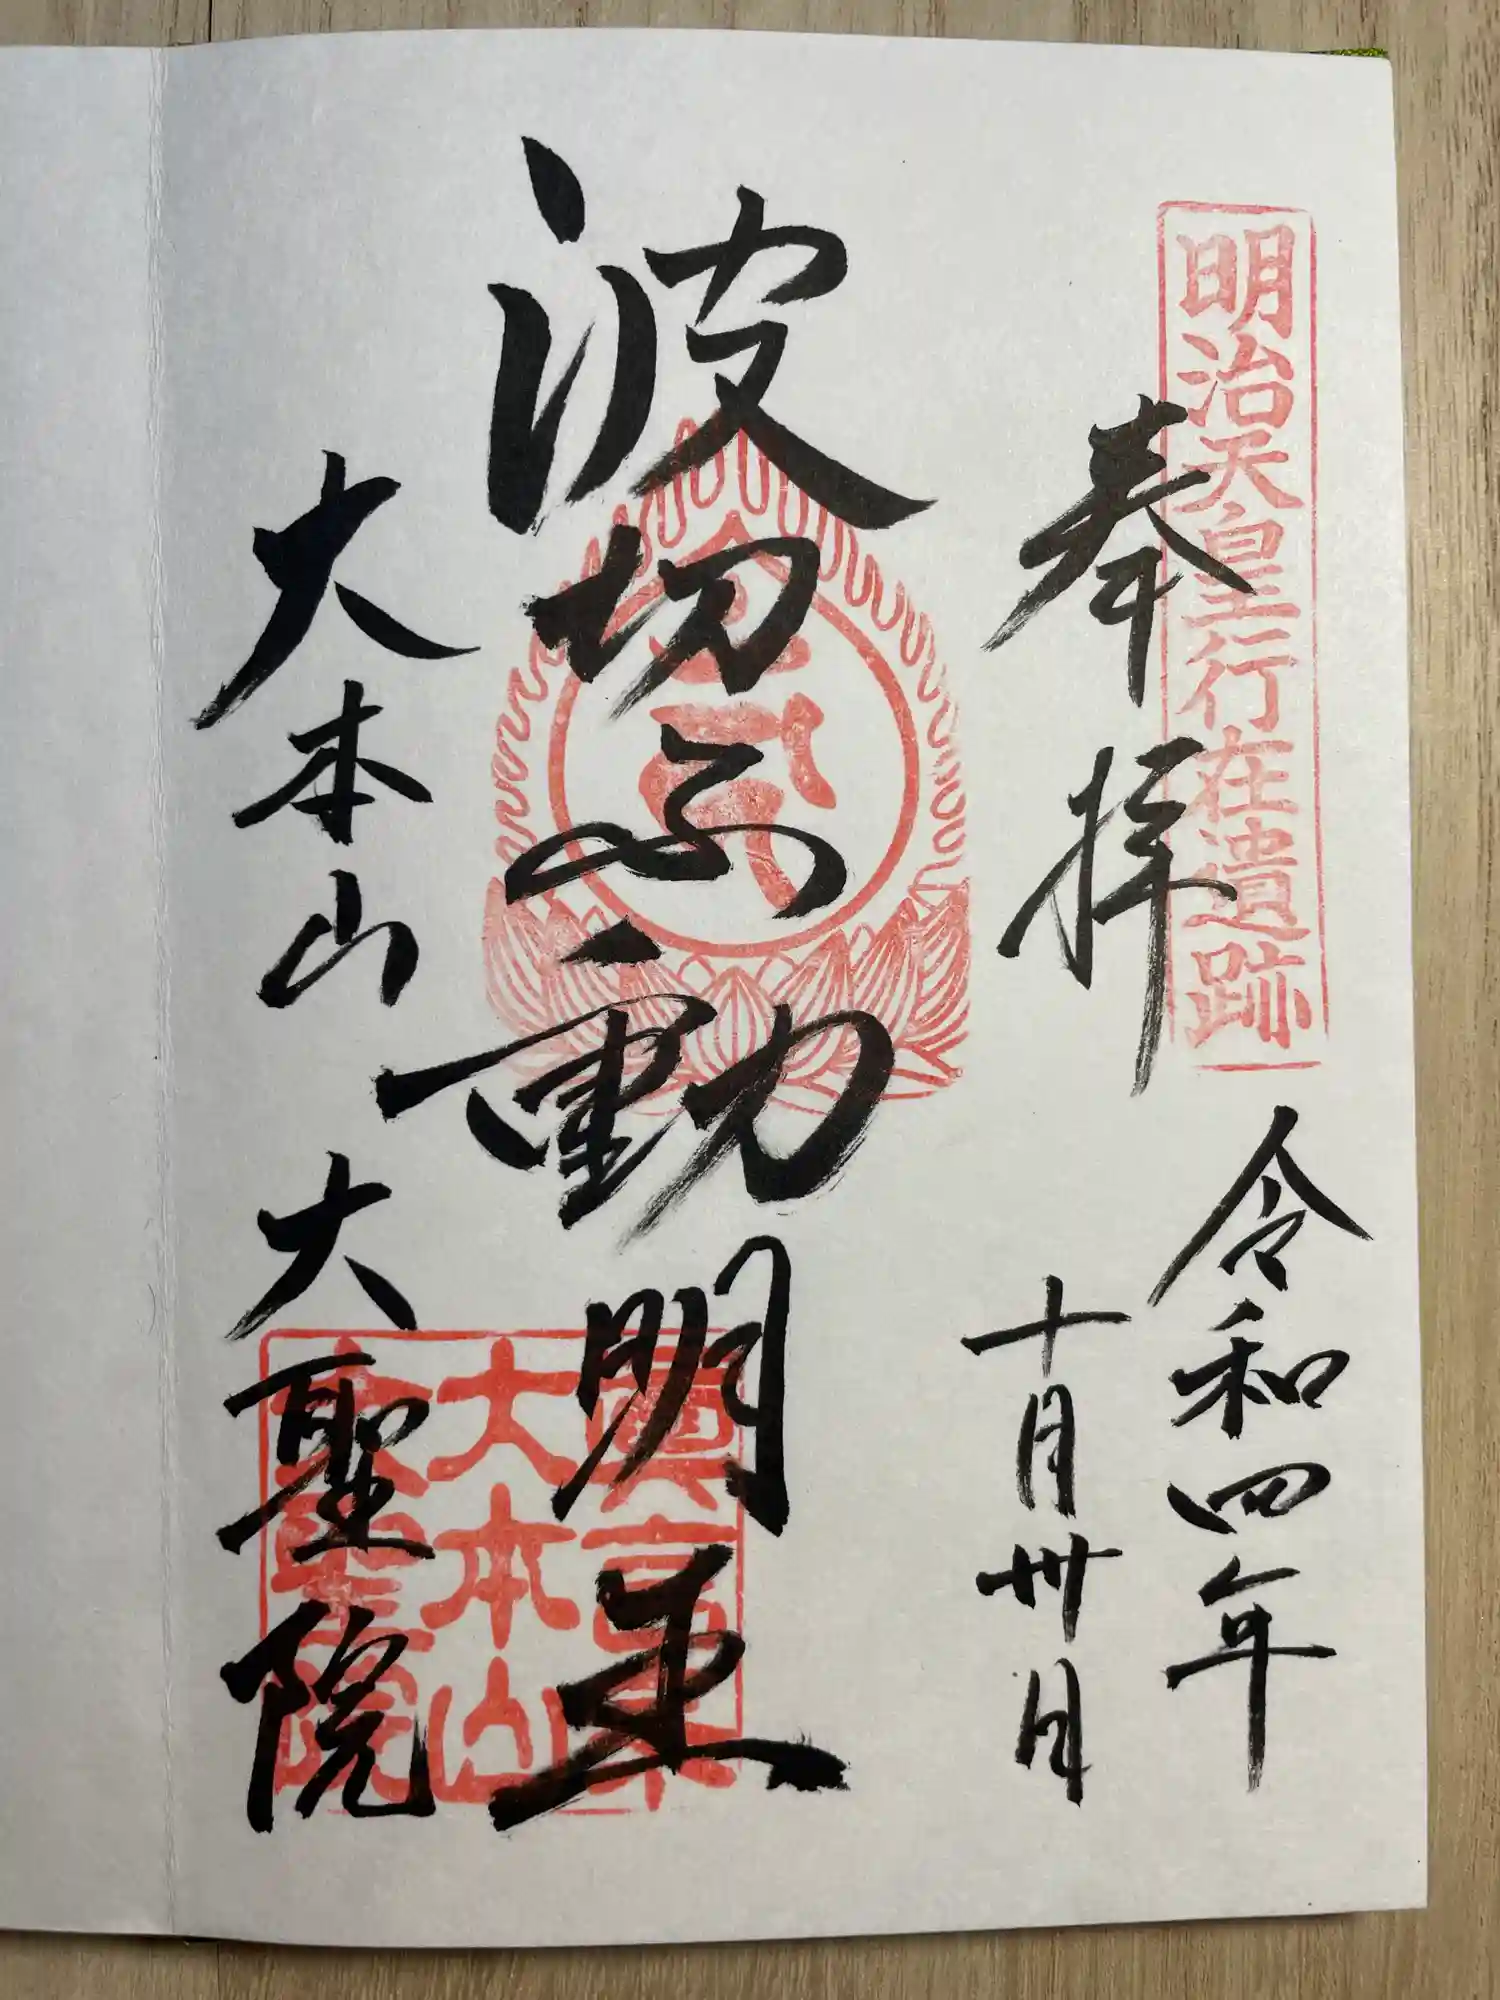 明治天皇行在遺跡
奉拝
令和四年
十月卅日
波切不動明王
大本山
大聖院
眞言宗
大本山
大聖院